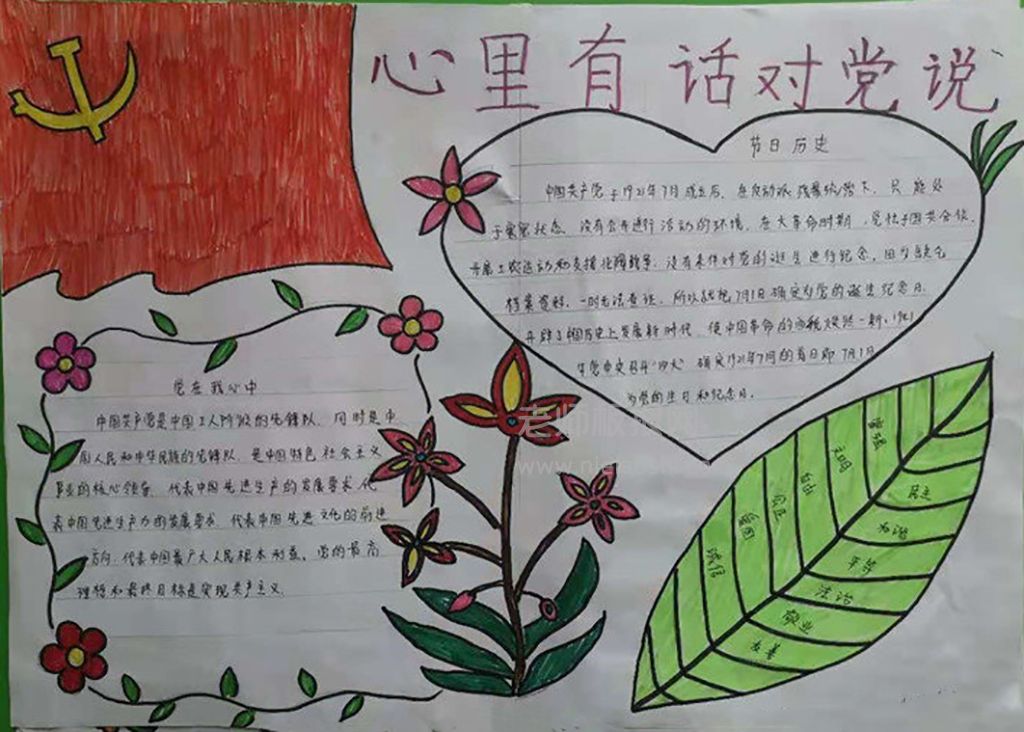 心里有话对党说
节日历史
中国共产党于1921年7月成立后，在反动派残暴统治下，只能处
于秘密状态，没有公开进行活动的环境。在大革命时期，受忙于国共合作、
开展工农运动和支援北阀战争，没有条件对党的诞生进行纪念，因为缺乏
档案资料，一时无法查证，所以就把7月1日确定为党的诞生纪念日。
开辟了中国历史上发展新时代，使中国革命的面貌焕然一新。1921
年党中央召开“四大”确定1921年7月的首日即7月1日
为党的生日和纪念日。
党在我心中
中国共产党是中国工人阶级的先锋队，同时是中
国人民和中华民族的先锋队，是中国特色社会主义
事业的核心领导，代表中国先进生产的发展要求，代
表中国先进生产力的发展要求，代表中国先进文化的前进
方向，代表中国最广大人民根本利益。党的最高
理想和最终目标是实现共产主义。
富强
文明
自由
公正
爱国
诚信
民主
和谐
平等
法治
敬业
友善